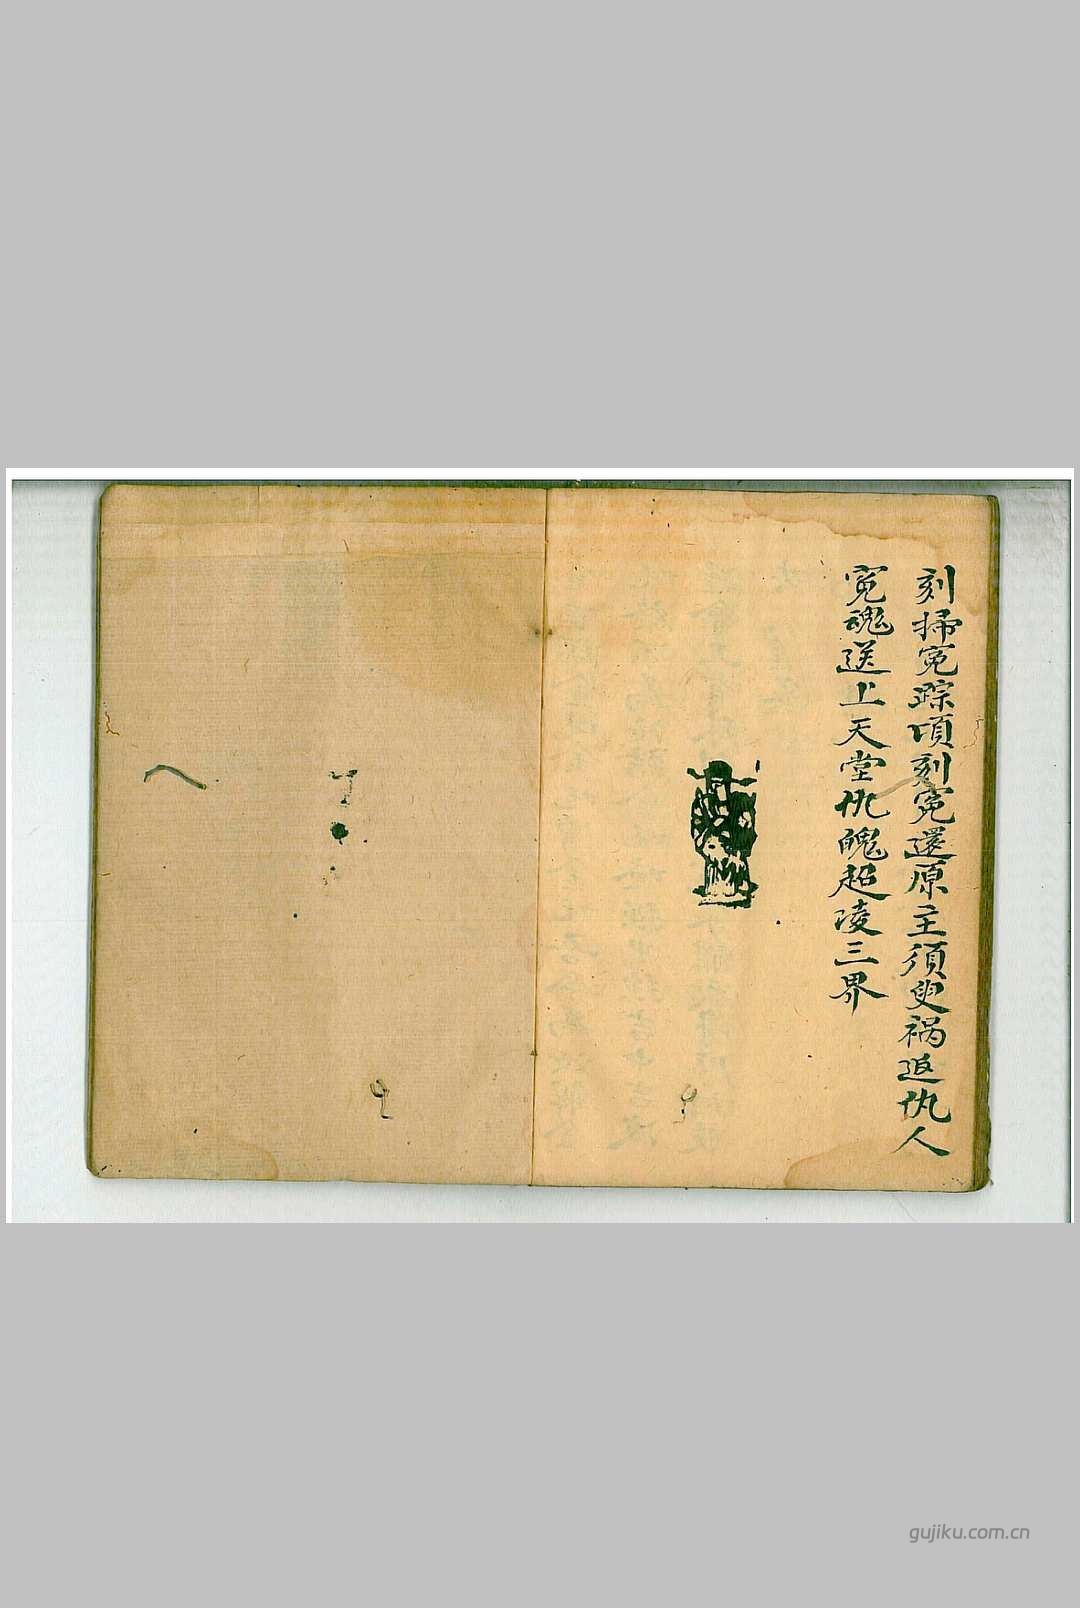 刻掃冤踪頃刻冤還原主須臾禍返仇人
冤魂送上天堂仇魄超凌三界
gujiku.com.cn